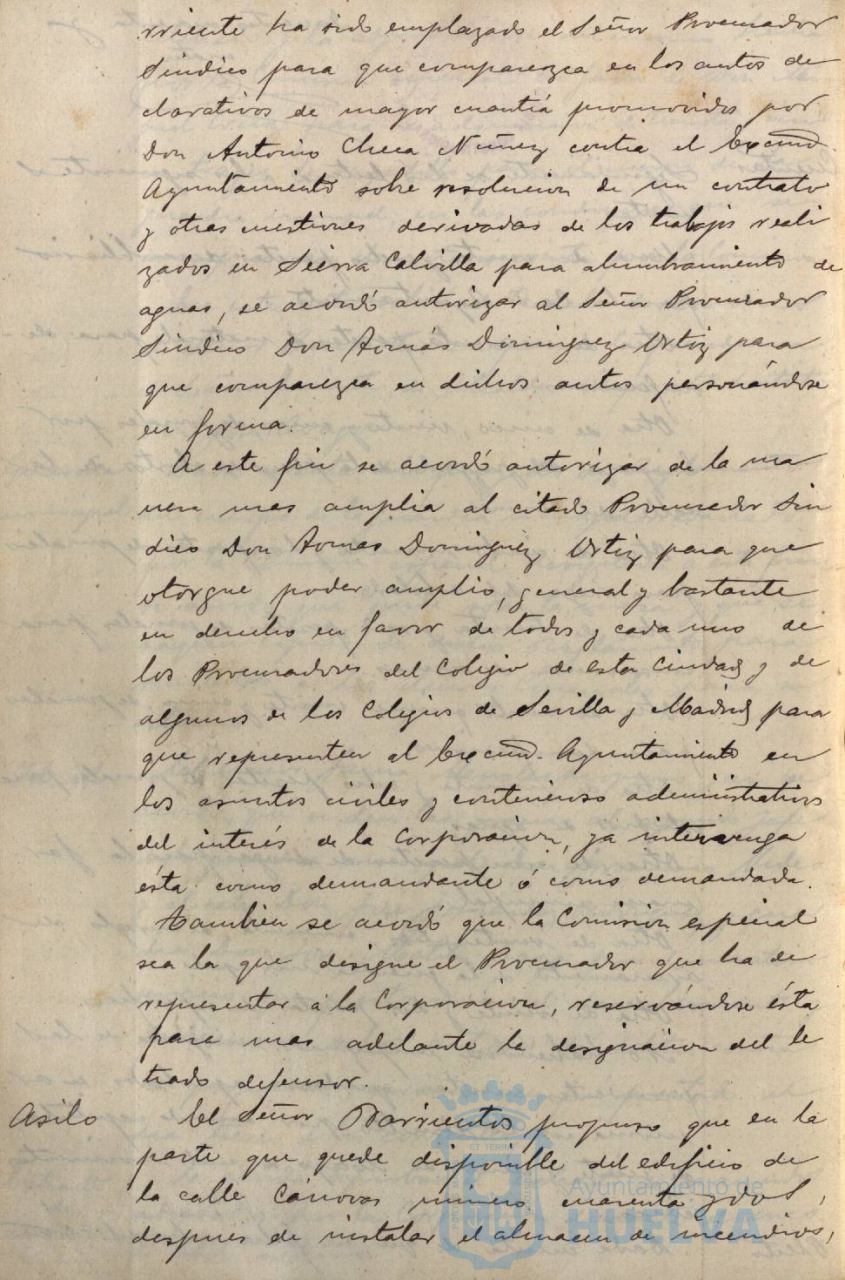 rriente ha sido emplazado el Señor Procurador
Síndico para que comparezca en los autos de
clarativos de mayor cuantía promovidos por
Don Antonio Checa Nuñez contra el Excmo.
Ayuntamiento sobre resolucion de un contrato
y otras cuestiones derivadas de los trabajos reali
zados en Sierra Calvilla para alumbramiento de
aguas, se acordó autorizar al Señor Procurador
Síndico Don Tomás Dominguez Ortiz para
que comparezca en dichos autos personándose
en forma.
A este fin se acordó autorizar de la ma
nera mas amplia al citado Procurador Sín
dico Don Tomas Dominguez Ortiz para que
otorgue poder amplio, general y bastante
en derecho en favor de todos y cada uno de
los Procuradores del Colegio de esta Ciudad y de
algunos de los Colegios de Sevilla y Madrid para
que representen al Excmo. Ayuntamiento en
los asuntos civiles y contencioso administrativos
del interés de la Corporacion, ya intervenga
ésta como demandante ó como demandada.
Tambien se acordó que la Comision especial
sea la que designe el Procurador que ha de
representar á la Corporacion, reservándose ésta
para mas adelante la designacion del le
trado defensor.
Asilo El Señor Barrientos propuso que en la
parte que quede disponible del edificio de
la calle Cánovas número cuarenta y dos,
despues de instalar el almacen de incendios,
Ayuntamiento de
HUELVA